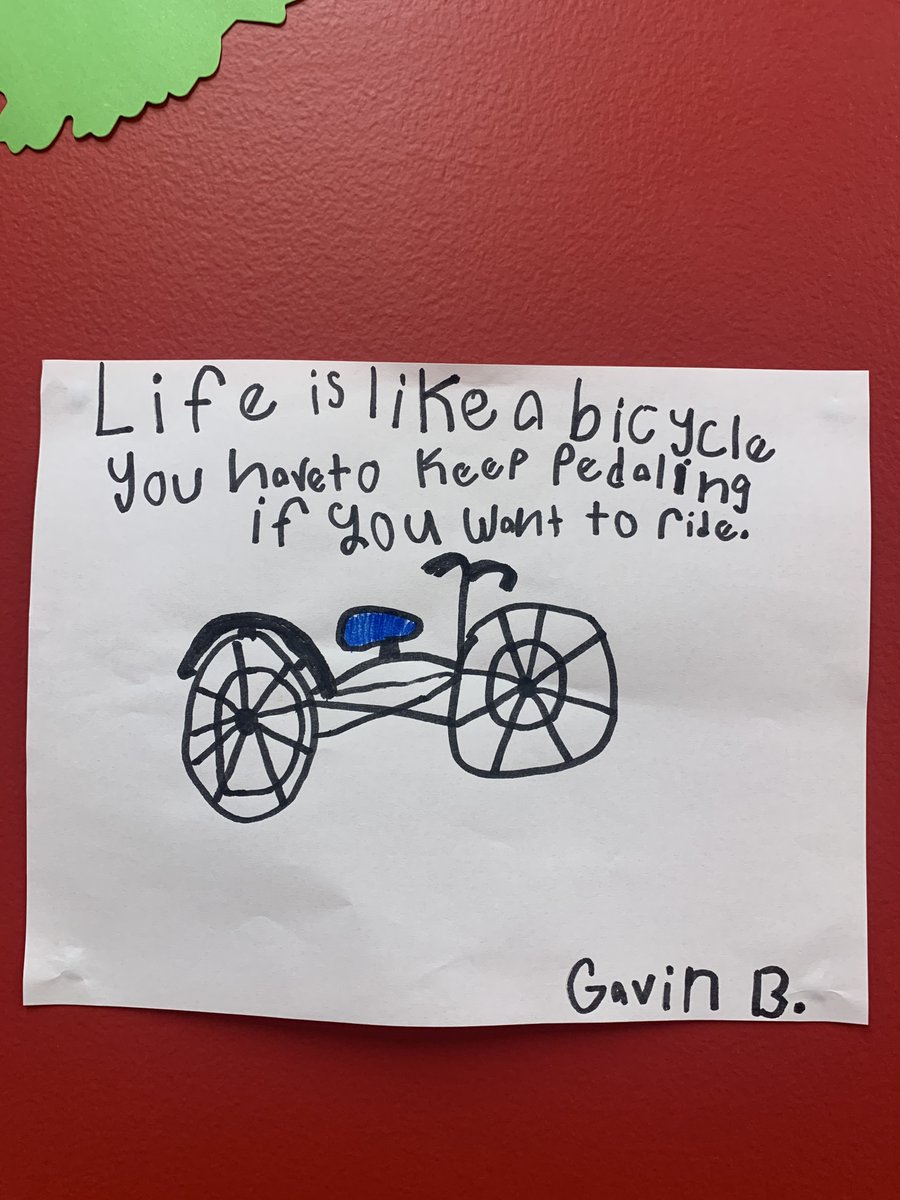 Life is like a bicycle
you have to keep pedaling
if you want to ride.
Gavin B.